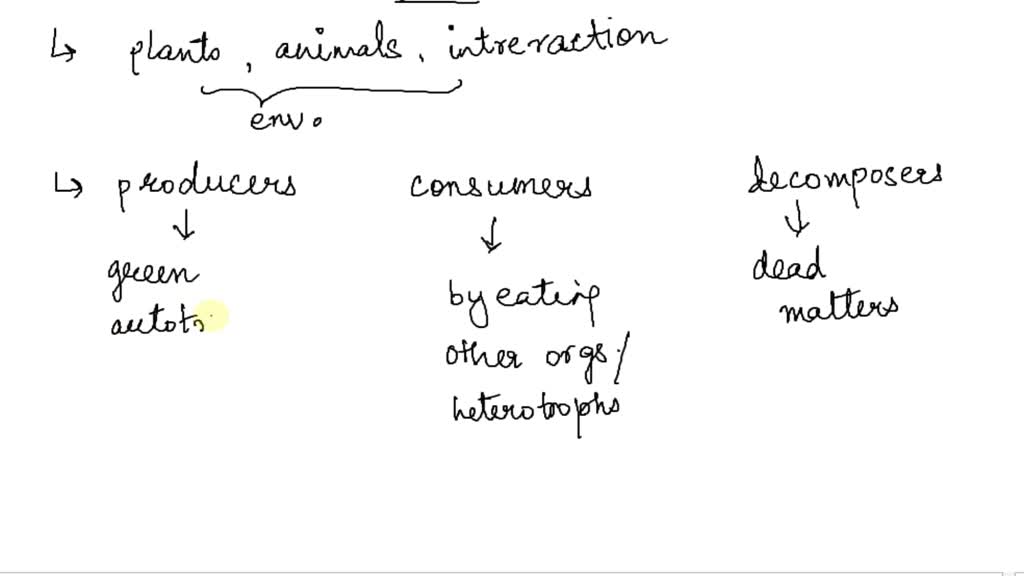 ↳ plants, animals, intreraction
env.
↳ producers consumers decomposers
↓ ↓ ↓
green
autotr
by eating
other orgs/
heterotrophs
dead
matters